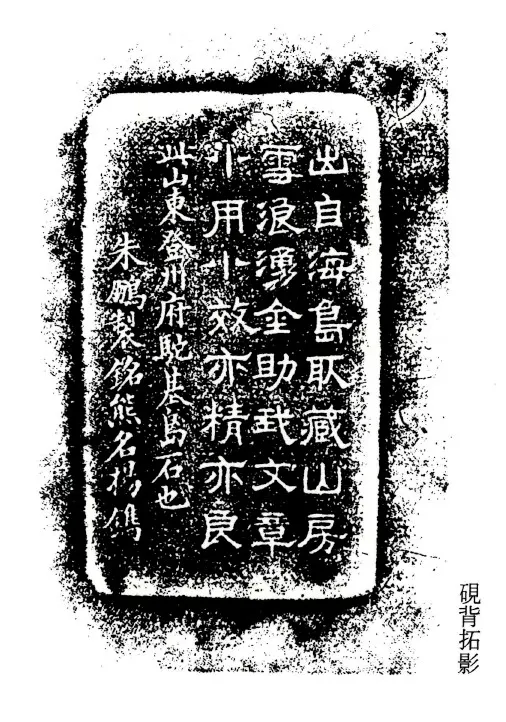 出自海島取藏山房
雪浪湧金助我文章
小用小效亦精亦良
此山東登州府駝基島石也
朱鵬製銘熊名揚鐫
硯背拓影